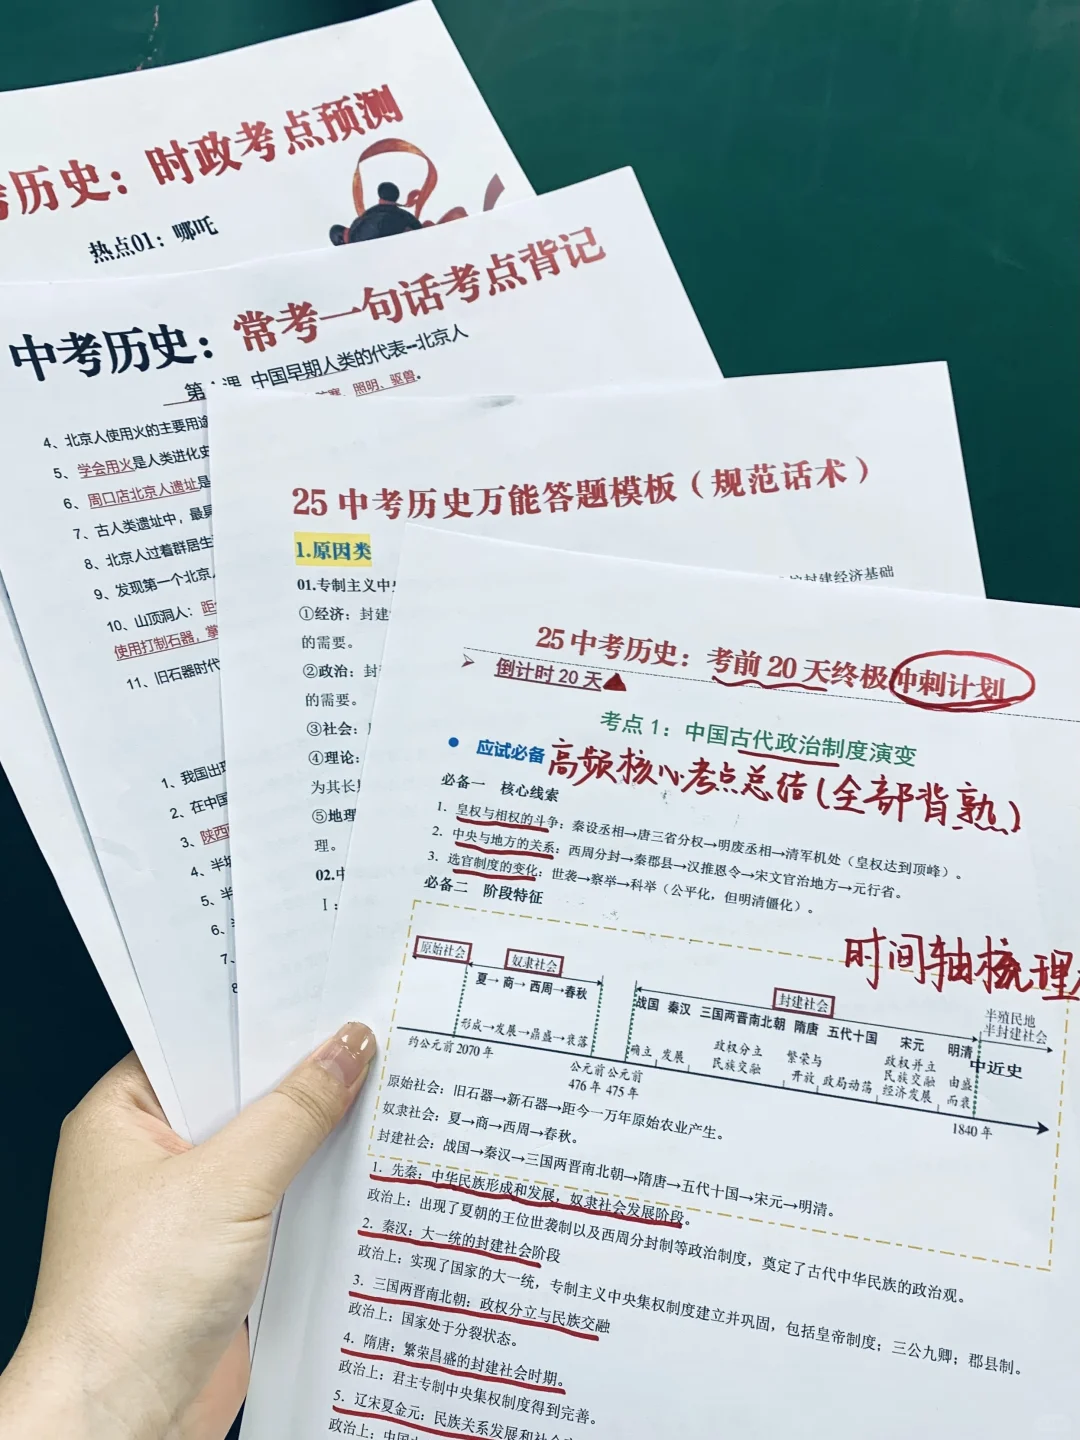 考历史：时政考点预测
热点01：哪吒
中考历史：常考一句话考点背记
中国早期人类的代表-北京人
照明、驱兽。
4、北京人使用火的主要用途
5、学会用火是人类进化史
6、周口店北京人遗址是
7、古人类遗址中，最具
8、北京人过着群居生
9、发现第一个北京人
10、山顶洞人：距
使用打制石器，掌
11、旧石器时代
1、我国出现
2、在中国
3、陕西
4、半坡
5、半
6、
7、
8
25中考历史万能答题模板（规范话术）
1.原因类
01.专制主义中央
封建经济基础
①经济：封建
的需要。
②政治：封
的需要。
③社会：
④理论：
为其长
⑤地理
理。
02.中
1：
25中考历史：考前20天终极冲刺计划
➢ 倒计时20天
考点1：中国古代政治制度演变
● 应试必备 高频核心考点总结(全部背熟)
必备一 核心线索
1. 皇权与相权的斗争：秦设丞相→唐三省分权→明废丞相→清军机处（皇权达到顶峰）。
2. 中央与地方的关系：西周分封→秦郡县→汉推恩令→宋文官治地方→元行省。
3. 选官制度的变化：世袭→察举→科举（公平化，但明清僵化）。
必备二 阶段特征
时间轴梳理
原始社会 奴隶社会 封建社会 半殖民地半封建社会
夏→商→西周→春秋 战国 秦汉 三国两晋南北朝 隋唐 五代十国 宋元 明清 中近史
形成→发展→鼎盛→衰落 确立 发展 政权分立民族交融 繁荣与开放 政局动荡 政权并立民族交融经济发展 由盛而衰
约公元前2070年 公元前476年 公元前475年 1840年
原始社会：旧石器→新石器→距今一万年原始农业产生。
奴隶社会：夏→商→西周→春秋。
封建社会：战国→秦汉→三国两晋南北朝→隋唐→五代十国→宋元→明清。
1. 先秦：中华民族形成和发展，奴隶社会发展阶段。
政治上：出现了夏朝的王位世袭制以及西周分封制等政治制度，奠定了古代中华民族的政治观。
2. 秦汉：大一统的封建社会阶段
政治上：实现了国家的大一统，专制主义中央集权制度建立并巩固，包括皇帝制度；三公九卿；郡县制。
3. 三国两晋南北朝：政权分立与民族交融
政治上：国家处于分裂状态。
4. 隋唐：繁荣昌盛的封建社会时期。
政治上：君主专制中央集权制度得到完善。
5. 辽宋夏金元：民族关系发展和社会
政治上：中国